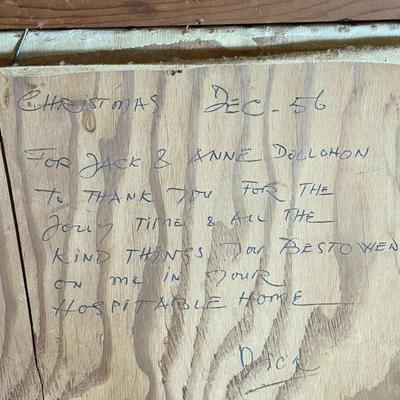 CHRISTMAS DEC - 56
FOR JACK & ANNE DOLLOHON
TO THANK YOU FOR THE
JOLLY TIME & ALL THE
KIND THINGS YOU BESTOWED
ON ME IN YOUR
HOSPITABLE HOME
DICK